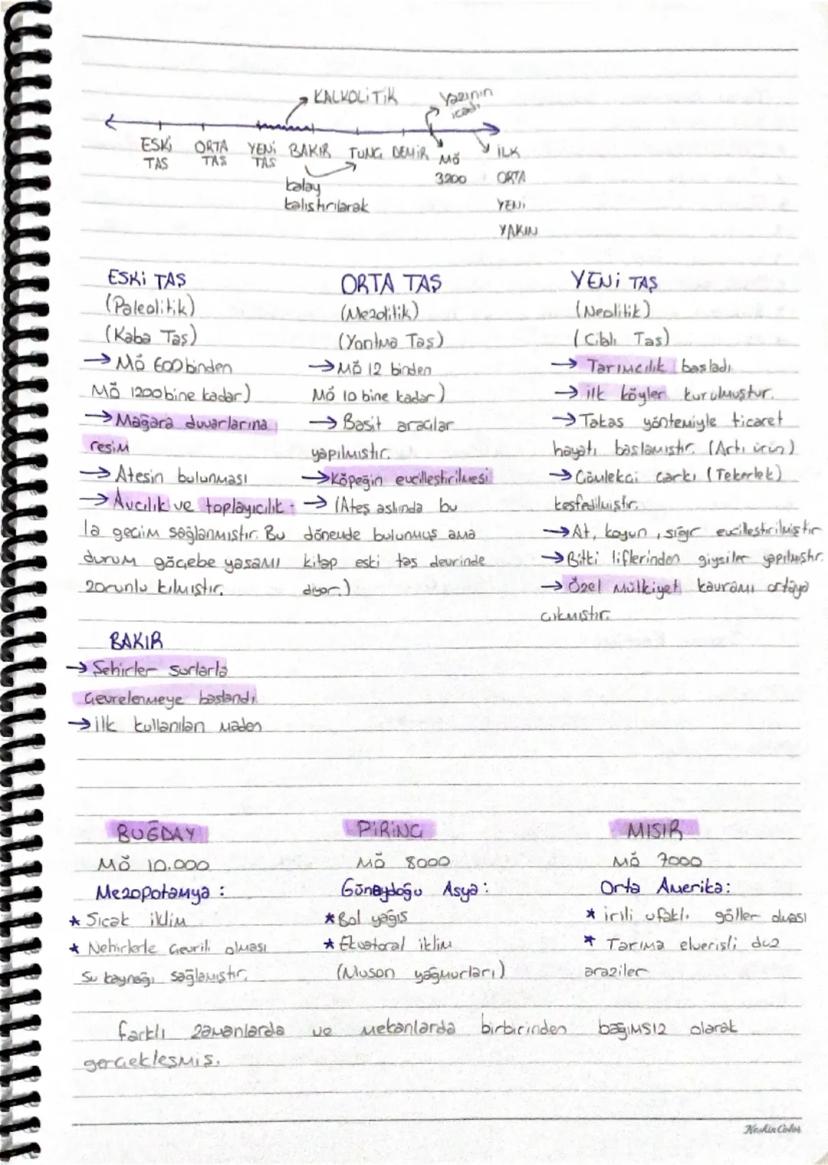 KALKOLİTİK
Yazının
icadı
ESKİ TAS
ORTA TAS
YENİ TAS
BAKIR
TUNÇ
DEMİR
MÖ
3200
İLK
ORTA
YENİ
YAKIN
kalay
kalıştırılarak
ESKİ TAŞ
(Paleolitik)
(Kaba Taş)
→ MÖ 600 binden
MÖ 1200 bine kadar)
→ Mağara duvarlarına
resim
→ Ateşin bulunması
→ Avcılık ve toplayıcılık
la geçim sağlanmıştır. Bu
durum göçebe yaşamı
zorunlu kılmıştır.
ORTA TAŞ
(Mezolitik)
(Yontma Taş)
→ MÖ 12 binden
MÖ 10 bine kadar)
→ Basit araçlar
yapılmıştır.
→ Köpeğin evcilleştirilmesi
→ (Ateş aslında bu
dönemde bulunmuş ama
kitap eski taş devrinde
diyor.)
YENİ TAŞ
(Neolitik)
(Cilalı Taş)
→ Tarımcılık başladı
→ İlk köyler kurulmuştur.
→ Takas yöntemiyle ticaret
hayatı başlamıştır. (Artı ürün)
→ Çömlekçi çarkı (Tekerlek)
keşfedilmiştir.
→ At, koyun, sığır evcilleştirilmiştir
→ Bitki liflerinden giysiler yapılmıştır.
→ Özel Mülkiyet kavramı ortaya
çıkmıştır.
BAKIR
→ Şehirler surlarla
çevrelenmeye başlandı
→ İlk kullanılan maden
BUĞDAY
MÖ 10.000
Mezopotamya :
* Sıcak iklim
* Nehirlerle çevrili olması
su kaynağı sağlamıştır.
PİRİNÇ
MÖ 8000
Güneydoğu Asya :
* Bol yağış
* Ekvatoral iklim
(Muson yağmurları)
MISIR
MÖ 7000
Orta Amerika:
* irili ufaklı göller olması
* Tarıma elverişli düz
araziler
farklı zamanlarda ve mekanlarda birbirinden bağımsız olarak
gerçekleşmiş.
Keskin Color